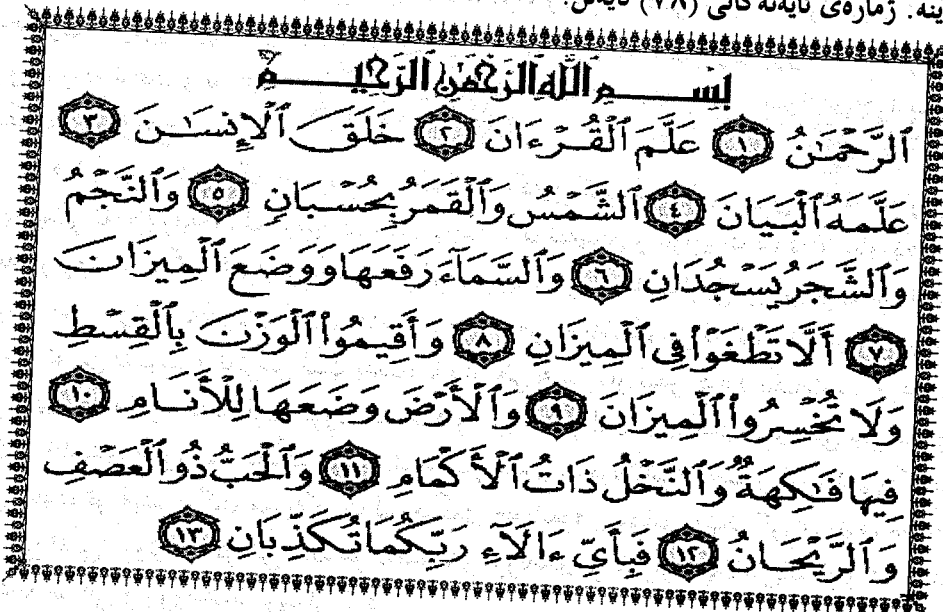 ینه. ژمارەی ئایەتەکانی (٧٨) ئایەتن.
بِسْمِ اللَّهِ الرَّحْمَٰنِ الرَّحِيمِ
ٱلرَّحْمَٰنُ ١ عَلَّمَ ٱلْقُرْءَانَ ٢ خَلَقَ ٱلْإِنسَٰنَ ٣
عَلَّمَهُ ٱلْبَيَانَ ٤ ٱلشَّمْسُ وَٱلْقَمَرُ بِحُسْبَانٍ ٥ وَٱلنَّجْمُ
وَٱلشَّجَرُ يَسْجُدَانِ ٦ وَٱلسَّمَآءَ رَفَعَهَا وَوَضَعَ ٱلْمِيزَانَ
٧ أَلَّا تَطْغَوْا۟ فِى ٱلْمِيزَانِ ٨ وَأَقِيمُوا۟ ٱلْوَزْنَ بِٱلْقِسْطِ
وَلَا تُخْسِرُوا۟ ٱلْمِيزَانَ ٩ وَٱلْأَرْضَ وَضَعَهَا لِلْأَنَامِ ١٠
فِيهَا فَٰكِهَةٌ وَٱلنَّخْلُ ذَاتُ ٱلْأَكْمَامِ ١١ وَٱلْحَبُّ ذُو ٱلْعَصْفِ
وَٱلرَّيْحَانُ ١٢ فَبِأَىِّ ءَالَآءِ رَبِّكُمَا تُكَذِّبَانِ ١٣